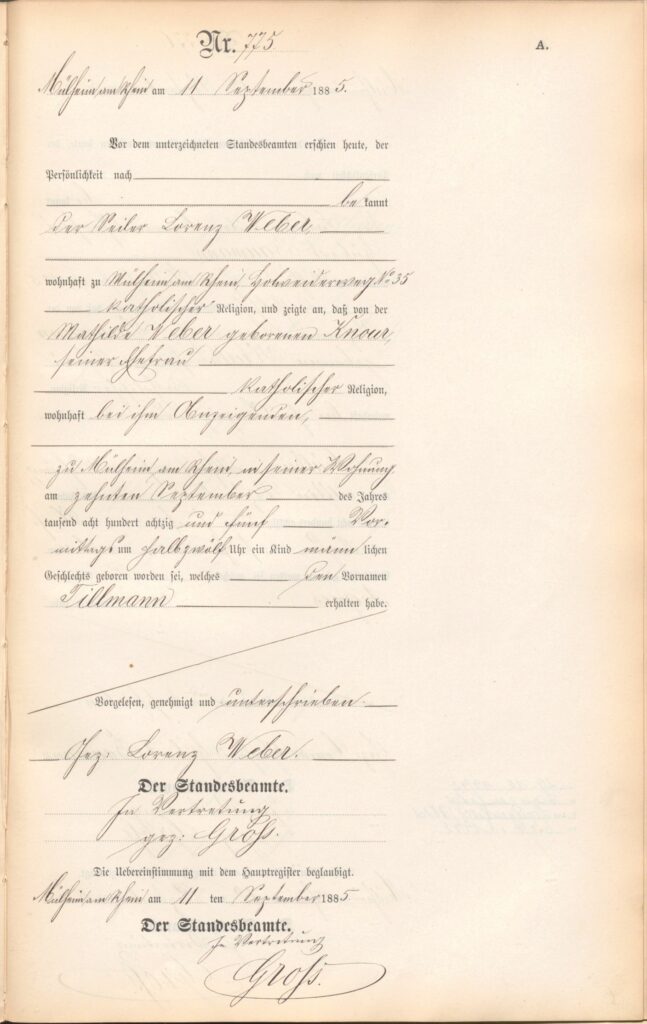 Nr. 775
A.
Mülheim am Rhein am 11 September 1885.
Vor dem unterzeichneten Standesbeamten erschien heute, der
Persönlichkeit nach
be kannt
der Seiler Lorenz Weber,
wohnhaft zu Mülheim am Rhein, Holweiderweg No 35
katholischer Religion, und zeigte an, daß von der
Mathilde Weber geborenen Knour,
seiner Ehefrau
katholischer Religion,
wohnhaft bei ihm Anzeigenden,
zu Mülheim am Rhein, in seiner Wohnung
am zehnten September des Jahres
tausend acht hundert achtzig und fünf Vor-
mittags um halbzwölf Uhr ein Kind männ lichen
Geschlechts geboren worden sei, welches den Vornamen
Tillmann erhalten habe.
Vorgelesen, genehmigt und unterschrieben.
Gez: Lorenz Weber.
Der Standesbeamte.
In Vertretung
gez: Groß.
Die Uebereinstimmung mit dem Hauptregister beglaubigt.
Mülheim am Rhein am 11 ten September 1885
Der Standesbeamte.
In Vertretung
Groß.